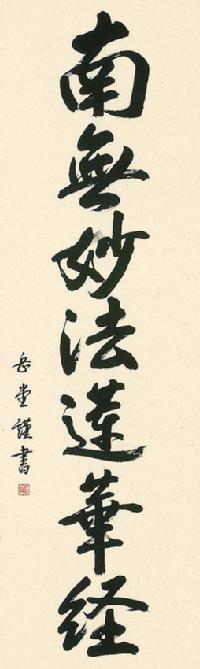 南無妙法蓮華経
岳堂謹書